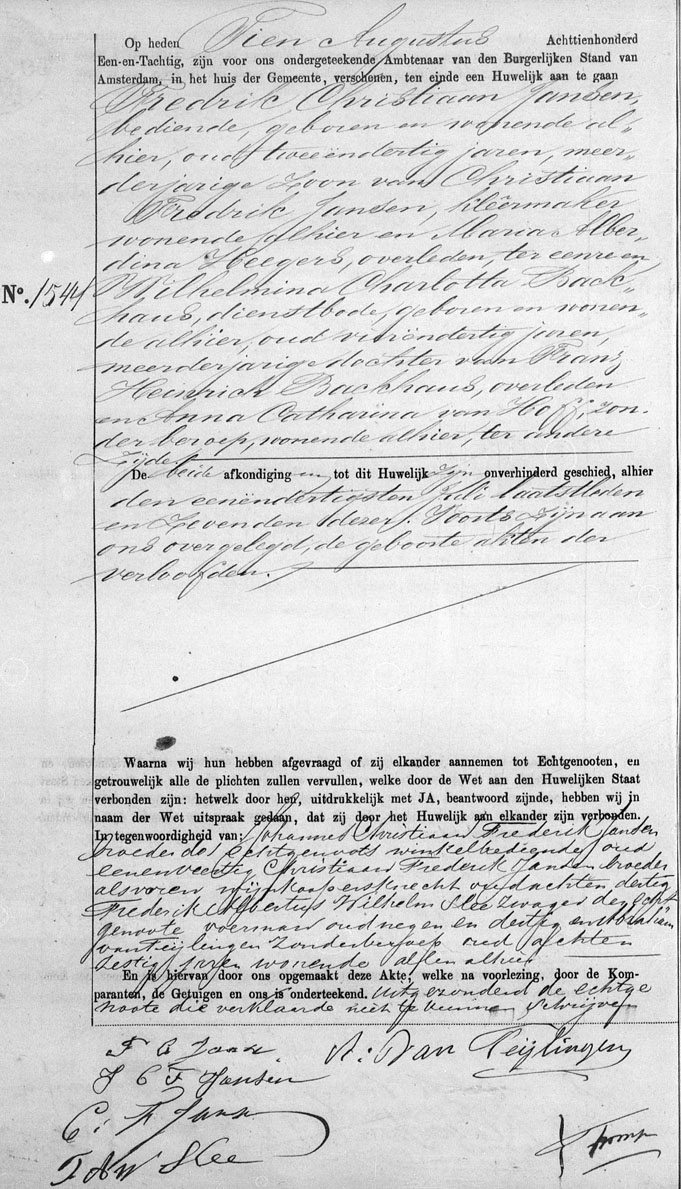 Op heden Tien Augustus Achttienhonderd
Een-en-Tachtig, zijn voor ons ondergeteekende Ambtenaar van den Burgerlijken Stand van
Amsterdam, in het huis der Gemeente, verschenen, ten einde een Huwelijk aan te gaan
Fredrik Christiaan Jansen,
bediende, geboren en wonende al-
hier, oud tweeëndertig jaren, meer-
derjarige Zoon van Christiaan
Fredrik Jansen, kleermaker
wonende alhier en Maria Alber-
dina Heegers, overleden, ter eenre en
No. 1544 Wilhelmina Charlotta Back-
haus, dienstbode, geboren en wonen-
de alhier, oud vierëndertig jaren,
meerderjarige dochter van Franz
Heinrich Backhaus, overleden
en Anna Catharina van Hoff, zon-
der beroep, wonende alhier, ter andere
Zijde.
De beide afkondiging en tot dit Huwelijk zijn onverhinderd geschied, alhier
den eenëndertigsten Juli laatstleden
en Zevenden dezer. Voorts Zijn aan
ons overgelegd, de geboorte akten der
verloofden.
Waarna wij hun hebben afgevraagd of zij elkander aannemen tot Echtgenooten, en
getrouwelijk alle de plichten zullen vervullen, welke door de Wet aan den Huwelijken Staat
verbonden zijn: hetwelk door hen, uitdrukkelijk met JA, beantwoord zijnde, hebben wij in
naam der Wet uitspraak gedaan, dat zij door het Huwelijk aan elkander zijn verbonden.
In tegenwoordigheid van: Johannes Christiaan Frederik Jansen
broeder des Echtgenoots winkelbediende oud
eenenveertig Christiaan Frederik Jansen broeder
als voren wijnkoopersknecht oud achten dertig
Frederik Albertus Wilhelm Slee Zwager der Echt
genoote voerman oud negen en dertig en
van Teijlingen Zonder beroep oud achten
Zestig jaren wonende allen alhier
En is hiervan door ons opgemaakt deze Akte, welke na voorlezing, door de Kom-
paranten, de Getuigen en ons is onderteekend. Uitgezonderd de echtge
noote die verklaarde niet te kunnen Schrijven
F C Jansen A: Van Teijlingen
J C F Jansen
C: F Jansen
F A W Slee Tromp